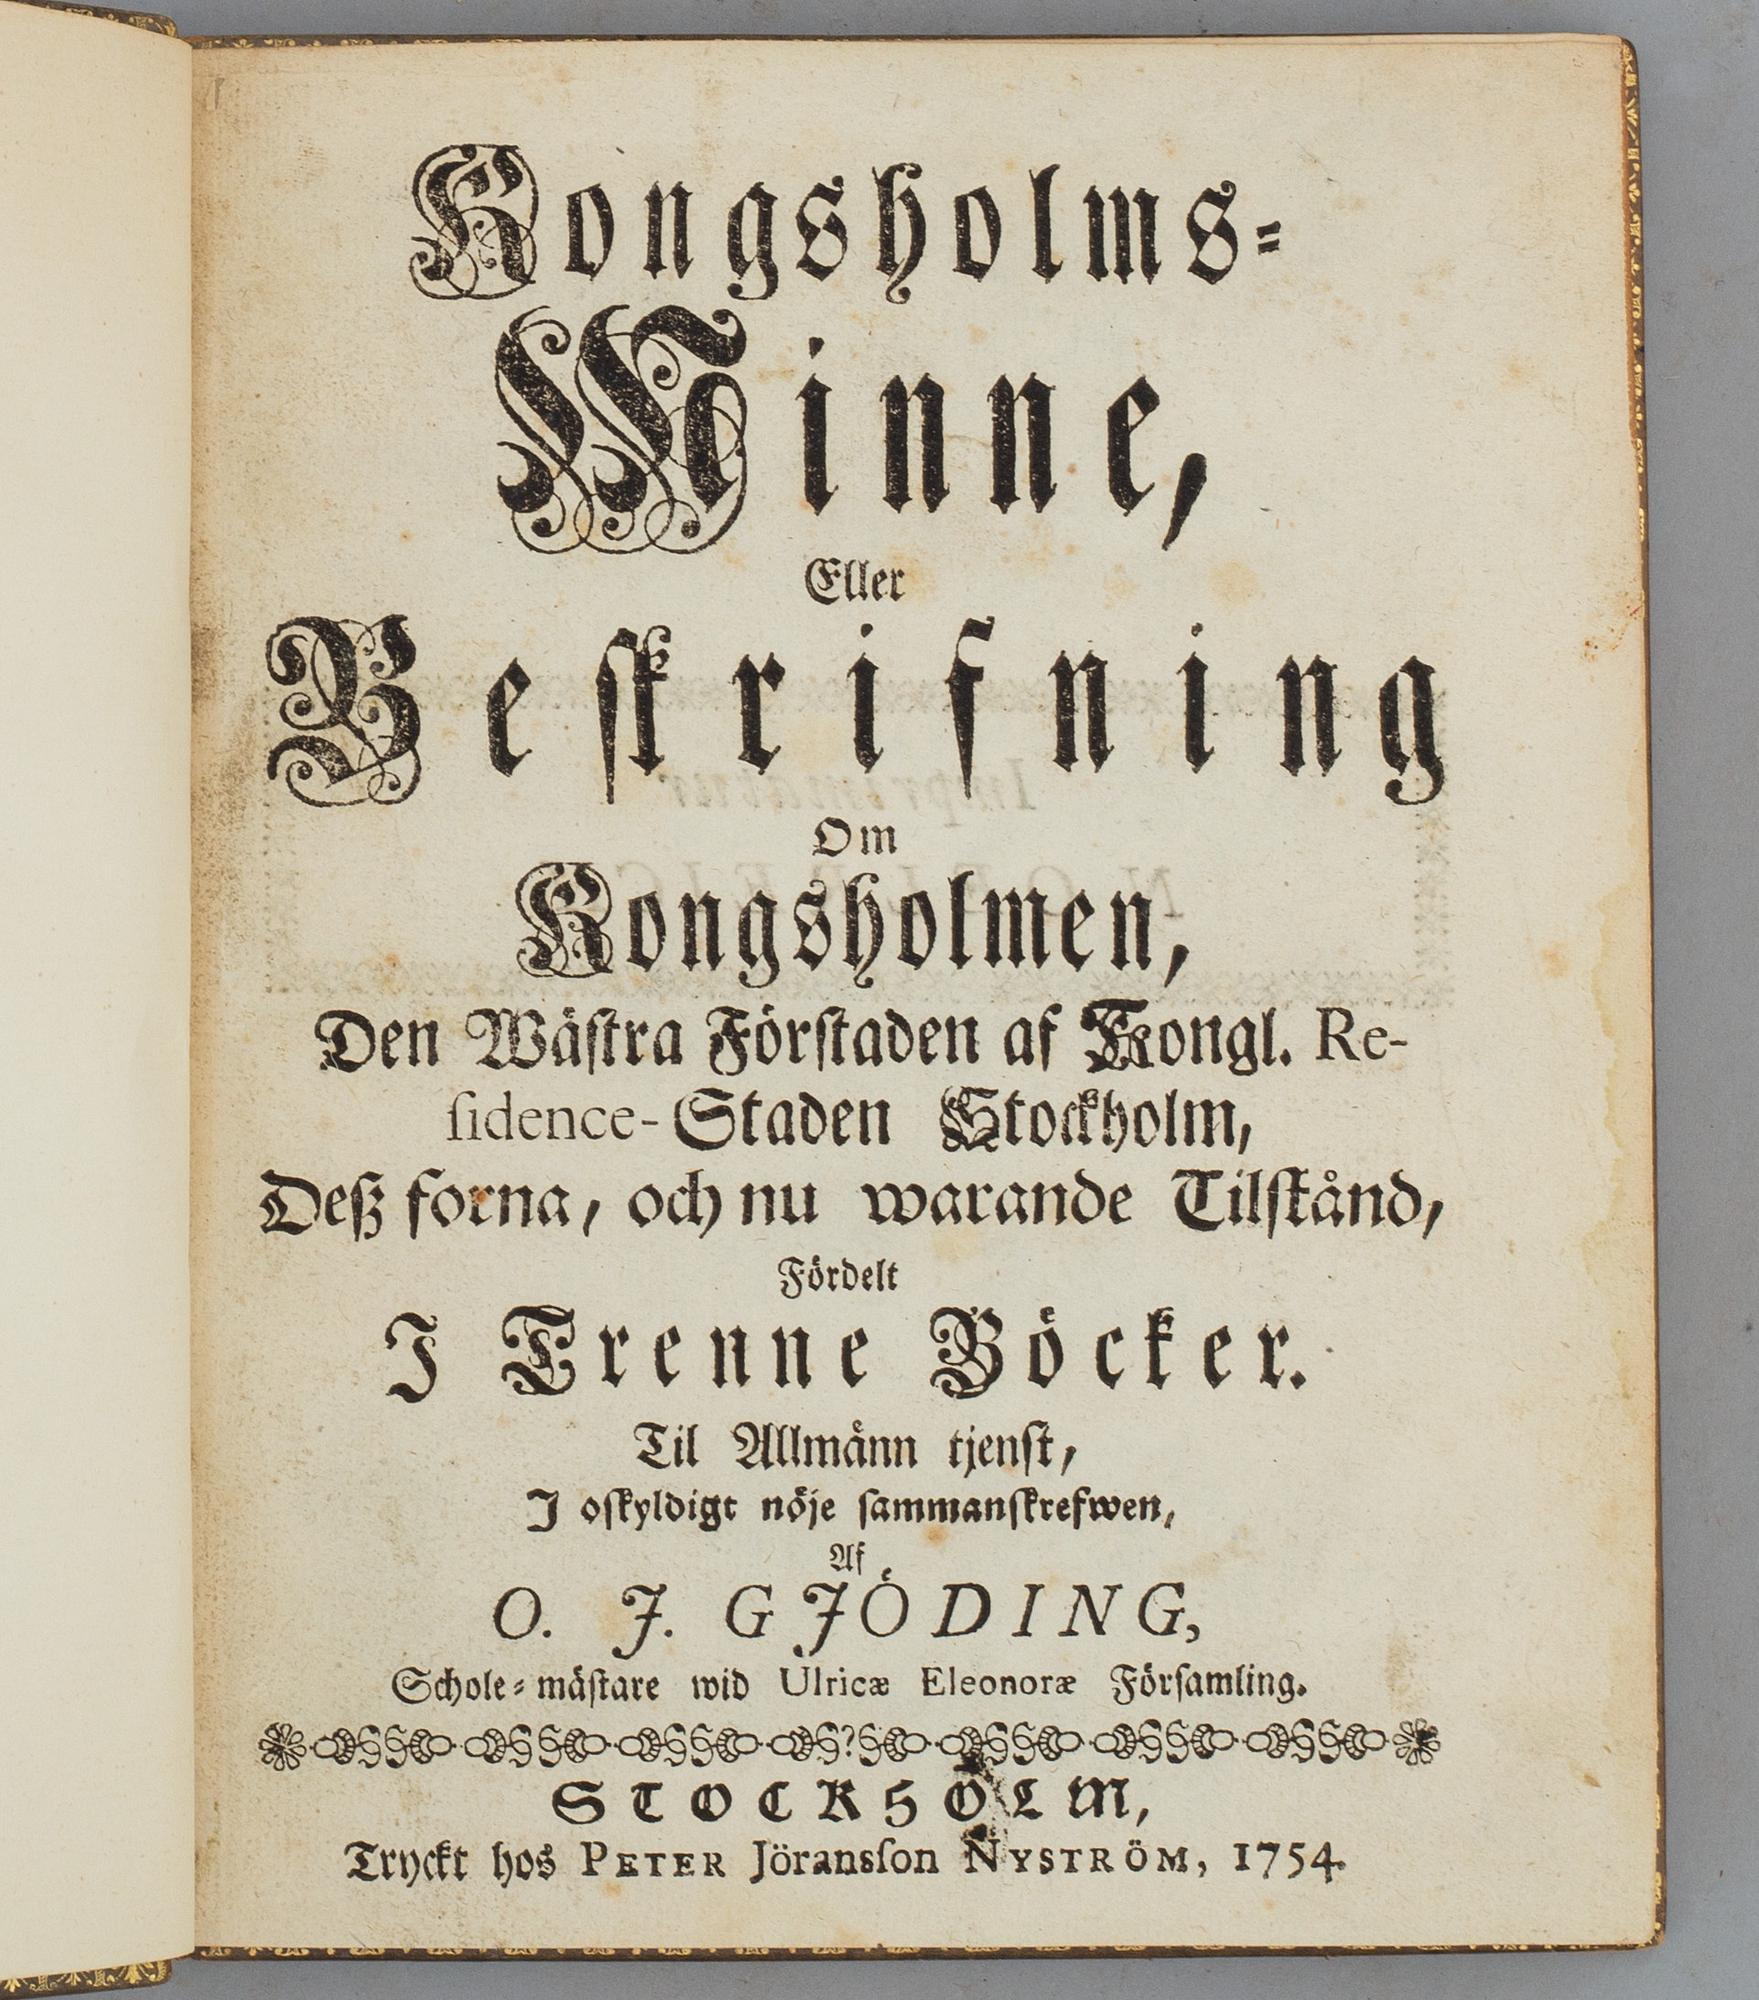 Kongsholms-
Minne,
Eller
Beſkrifning
Om
Kongsholmen,
Den Wäſtra Förſtaden af Kongl. Re-
ſidence-Staden Stockholm,
Deß forna, och nu warande Tilſtånd,
Fördelt
I Trenne Böcker.
Til Allmänn tjenſt,
I oſkyldigt nöje ſammanſkrefwen,
Af
O. J. GJÖDING,
Schole-mäſtare wid Ulricæ Eleonoræ Förſamling.
STOCKHOLM,
Tryckt hos PETER Jöransſon NYSTRÖM, 1754.